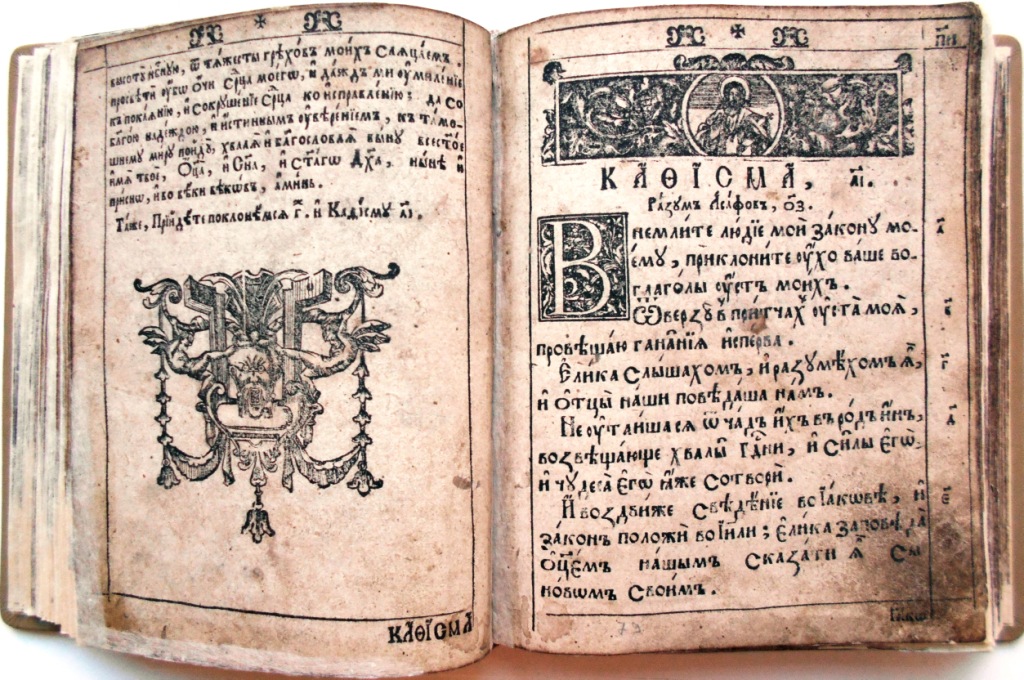 АІ ✠ АІ
высотꙋ нбⷭ҇нꙋю, ѿ тѧ́жесты грѣхѡ́въ мои́хъ
просвѣти̑ ᲂу҆̀бѡ ѻ҆́чи срⷣца моегѡ̀, и҆ да́ждъ ми ᲂу҆миле́нїе
къ покаѧ́нїю, и҆ сокрꙋше́нїе срⷣца ко и҆справле́нїю: да со
благо́ю наде́ждою, и҆ и҆́стиннымъ ᲂу҆вѣ́ренїемъ, къ та́мо-
шнемꙋ ми́рꙋ пойдꙋ̀, хвалѧ̀ и҆ благословлѧ̀ вы́нꙋ всест҃о́е
и҆́мѧ твоѐ, ѻ҆ц҃а̀, и҆ сн҃а, и҆ ст҃а́гѡ дх҃а, ны́нѣ и҆
при́снѡ, и҆ во вѣ́ки вѣкѡ́въ, а҆ми́нь.
Та́же, Прїиди́те поклони́мсѧ г҃. и҆ Каѳі́смꙋ а҃і.
КАѲІСМА
АІ ✠ АІ
п҃и
КАѲІ́СМА, а҃і.
Ра́зꙋмъ Аса́фовъ, о҃з.
Внемли́те лю́дїе мои̑ зако́нꙋ мо-
емꙋ̀, приклони́те ᲂу҆́хо ва́ше во-
глаго́лы ᲂу҆́стъ мои́хъ.
а҃
Ѿве́рзꙋ въ при́тчахъ ᲂу҆ста̀ моѧ̑,
в҃
провѣща́ю гана́нїѧ и҆спе́рва.
Е҆ли́ка слы́шахомъ, и҆ разꙋмѣ́хомъ ѧ҆̀,
г҃
и҆ ѻ҆тцы̀ на́ши повѣ́даша на́мъ.
Не ᲂу҆таи́шасѧ ѿ ча́дъ и҆́хъ въ ро́дъ и҆́нъ,
д҃
возвѣща́юще хвалы̑ гдⷭ҇ни, и҆ си́лы є҆гѡ̀,
и҆ чꙋдеса̀ є҆гѡ̀ ꙗ҆̀же сотворѝ.
И҆ воздви́же свѣдѣ́нїе во і҆а́ковѣ, и҆
є҃
зако́нъ положѝ во і҆и҃ли; є҆ли́ка заповѣ́да
ѻ҆тцє́мъ на́шымъ сказа́ти ѧ҆̀ сы-
новѡ́мъ свои́мъ.
79